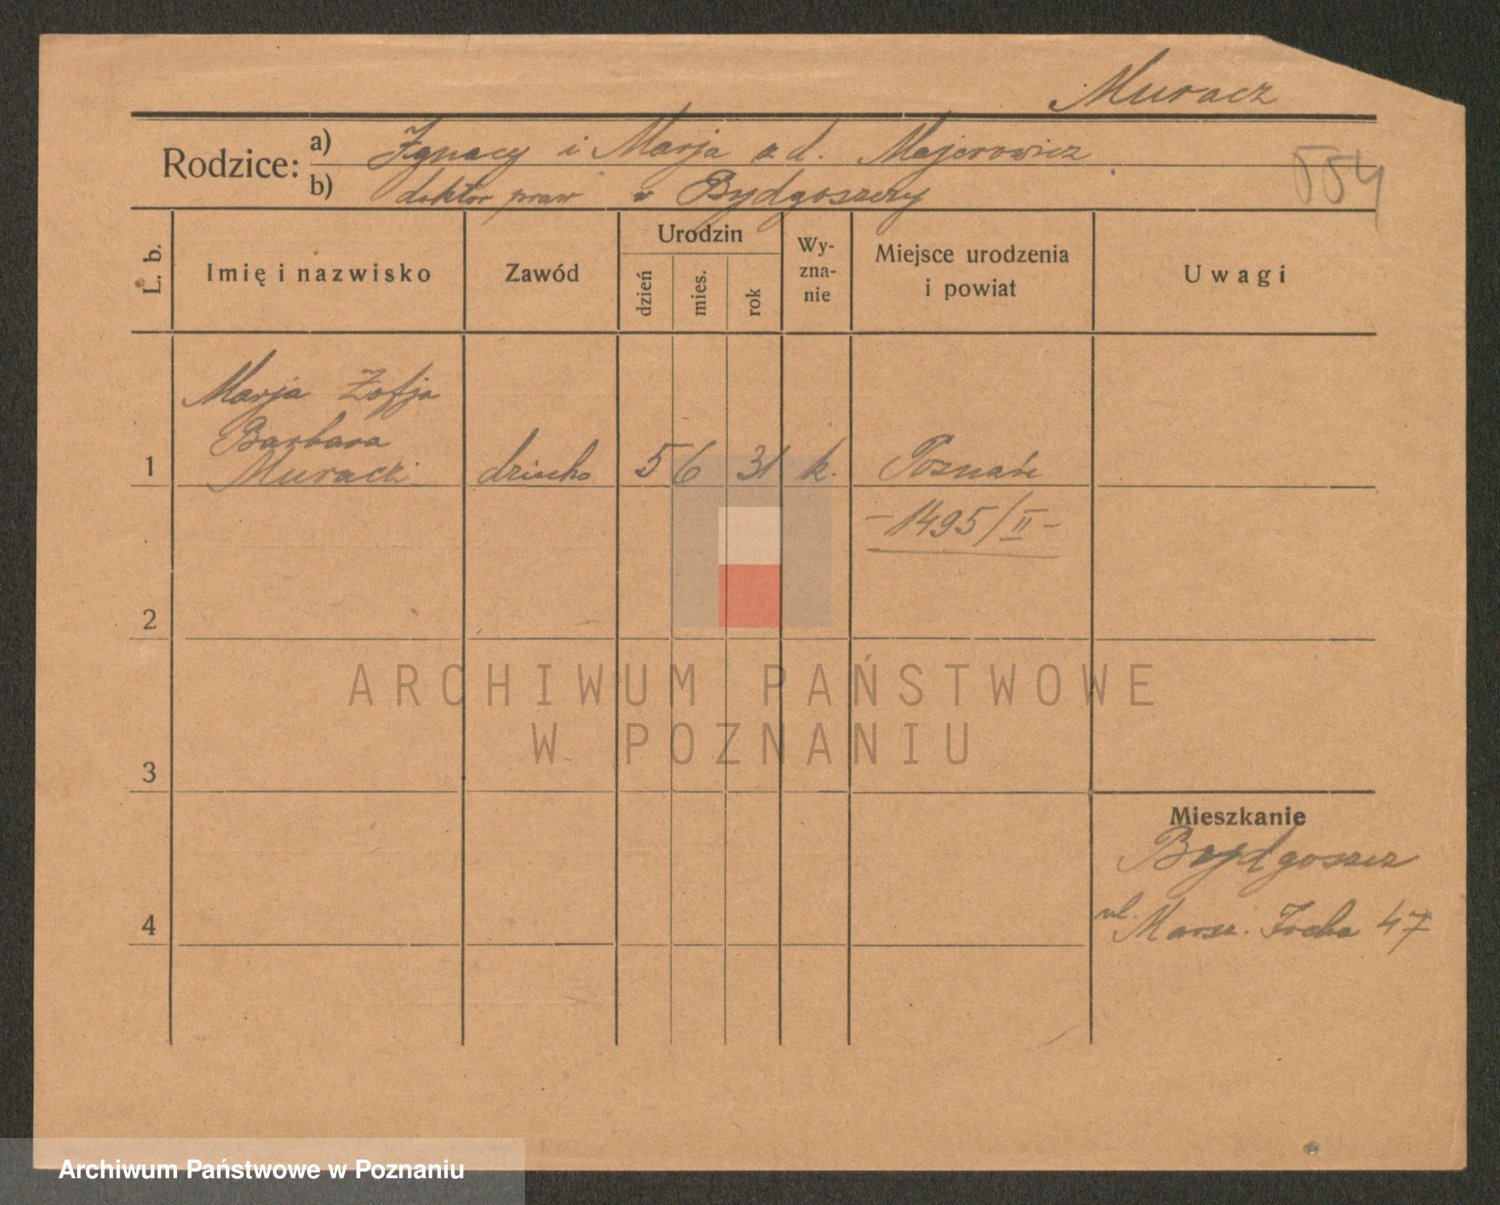 Muracz
Rodzice: a) Ignacy i Marja z d. Majerowicz
b) doktor praw w Bydgoszczy
554
L. b.
Imię i nazwisko
Zawód
Urodzin
dzień
mies.
rok
Wy-
zna-
nie
Miejsce urodzenia
i powiat
Uwagi
Marja Zofja
Barbara
1 Muracz dziecko 5 6 31 k. Poznań
- 1495/II -
2
ARCHIWUM PAŃSTWOWE
W POZNANIU
3
Mieszkanie
Bydgoszcz
4 ul. Marsz. Focha 47
Archiwum Państwowe w Poznaniu